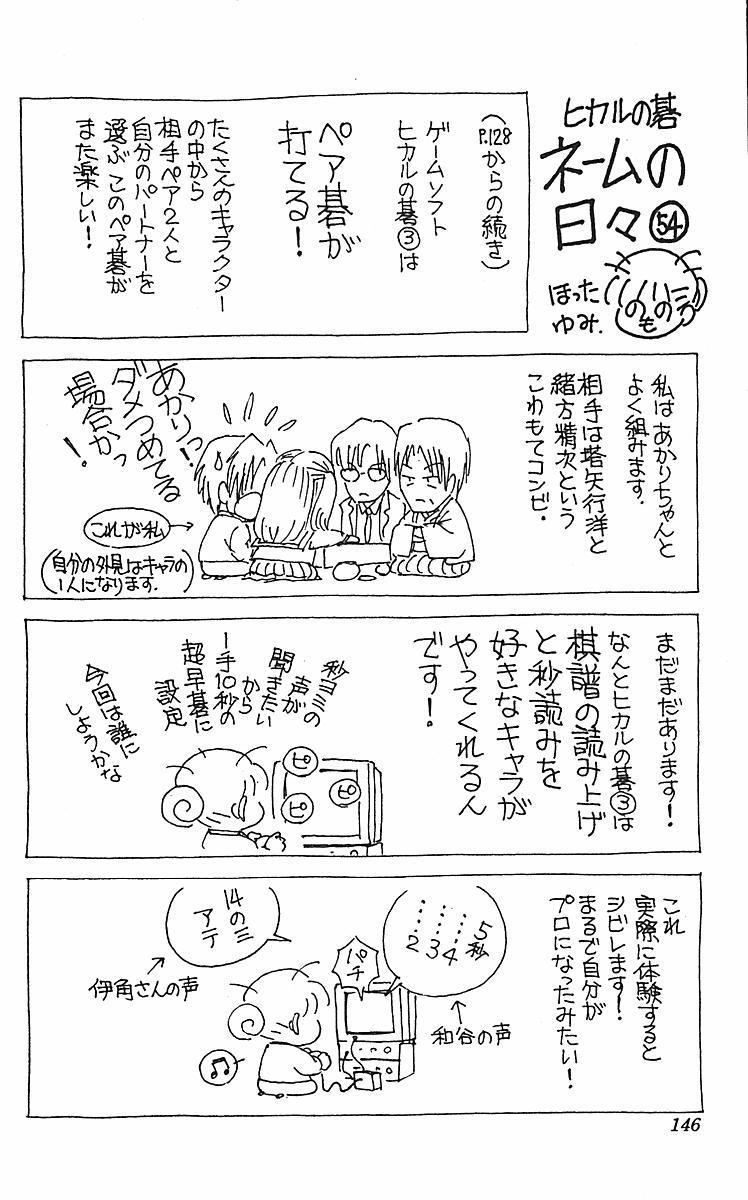 ヒカルの碁
ネームの
日々㊴
ほった
ゆみ.
へのへのもへの
(P.128からの続き)
ゲームソフト
ヒカルの碁③は
ペア碁が
打てる!
たくさんのキャラクター
の中から
相手ペア2人と
自分のパートナーを
選ぶこのペア碁が
また楽しい!
私はあかりちゃんと
よく組みます.
相手は塔矢行洋と
緒方精次という
こわもてコンビ.
あかりっ!
ダメつめてる
場合かっ
!
これが私
(自分の外見はキャラの
1人になります.)
まだまだあります!
なんとヒカルの碁③は
棋譜の読み上げ
と秒読みを
好きなキャラが
やってくれるん
です!
秒ヨミの
声が
聞きたい
から
一手10秒の
超早碁に
設定
今回は誰に
しようかな
ピ
ピ
ピ
これ
実際に体験すると
シビレます!
まるで自分が
プロになったみたい!
5秒
……4
……3
……2
和谷の声
パチ
14の三
アテ
伊角さんの声
♫
146